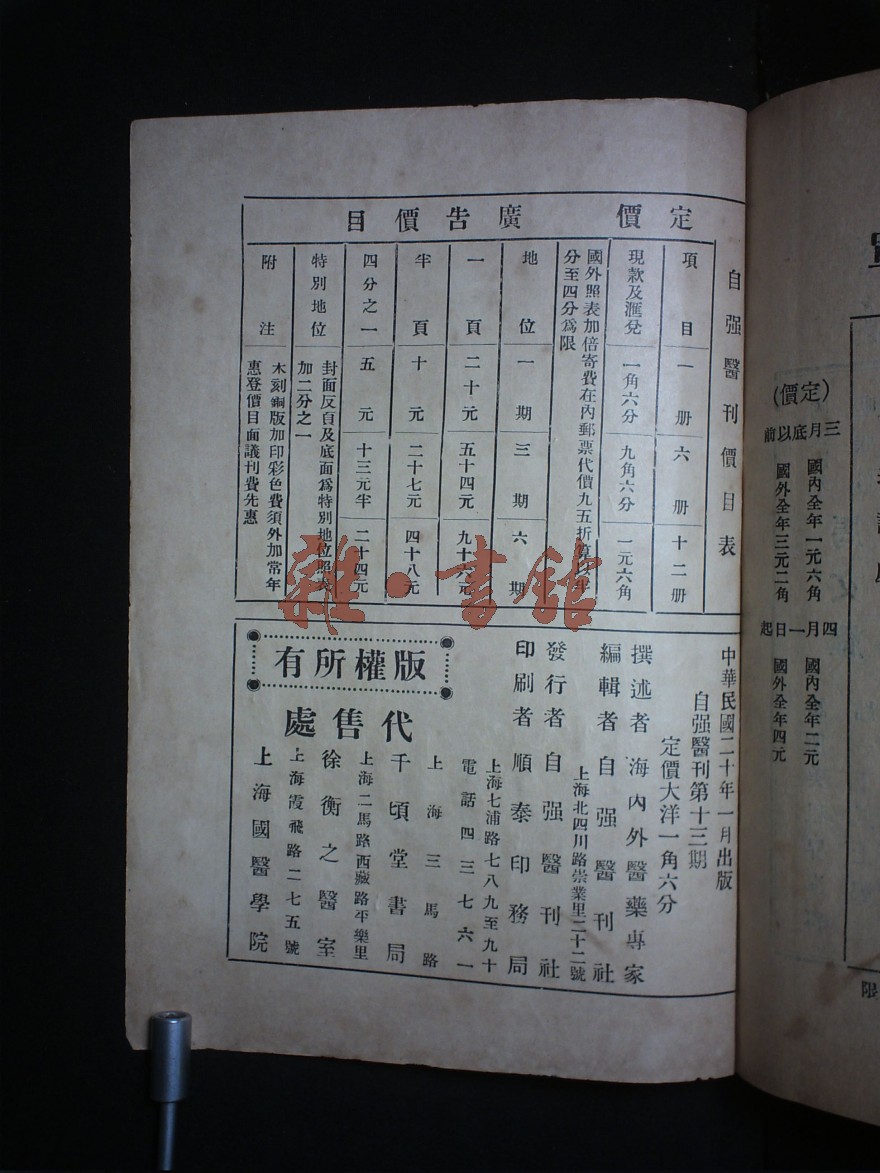 自强醫刊價目表
定價
項目 一册 六册 十二册
現款及滙兌 一角六分 九角六分 一元六角
國外照表加倍寄費在內郵票代價九五折算以半
分至四分爲限
廣告價目
地位 一期 三期 六期
一頁 二十元 五十四元 九十六元
半頁 十元 二十七元 四十八元
四分之一 五元 十三元半 二十四元
特別地位 封面反頁及底面爲特別地位照表
加二分之一
附注 木刻銅版加印彩色費須外加常年
惠登價目面議刊費先惠
中華民國二十年一月出版
自强醫刊第十三期
定價大洋一角六分
撰述者 海內外醫藥專家
編輯者 自强醫刊社
上海北四川路崇業里二十二號
發行者 自强醫刊社
印刷者 順泰印務局
上海七浦路七八九至九十
電話四三七六一
版權所有
代售處
上海三馬路
千頃堂書局
上海二馬路西藏路平樂里
徐衡之醫室
上海霞飛路二七五號
上海國醫學院
雜·書館
(定價)
三月底以前
國內全年一元六角
國外全年三元二角
四月一日起
國內全年二元
國外全年四元
限